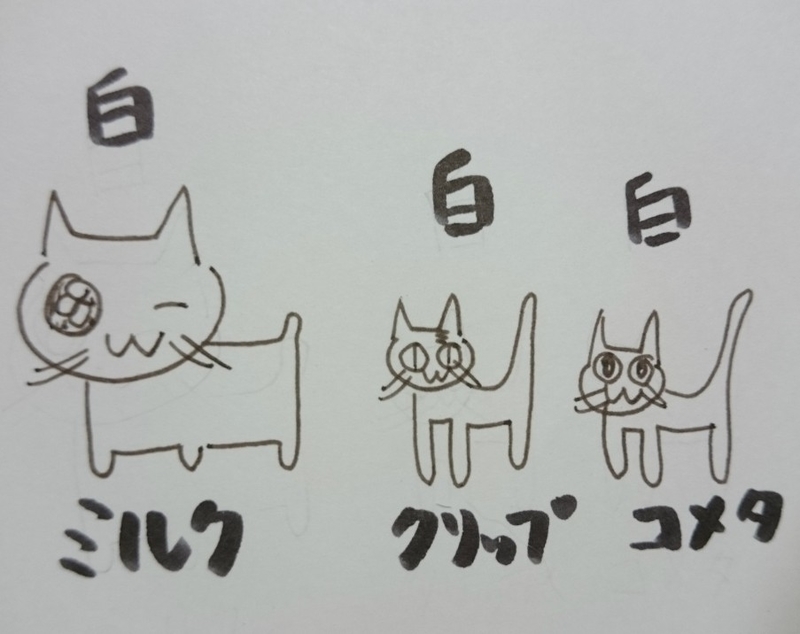 白
白 白
ミルク クリップ コメタ